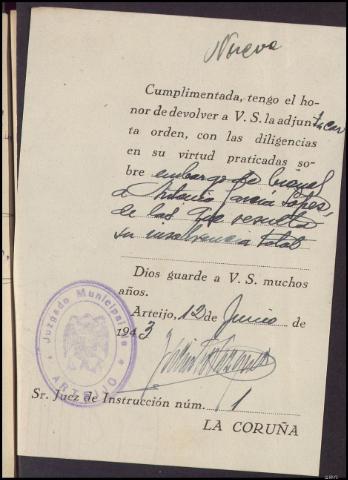 Nueva
Cumplimentada, tengo el ho-
nor de devolver a V. S. la adjun-
ta orden, con las diligencias
en su virtud praticadas so-
bre embargo de bienes
a Antonio García López,
de las que resulta
su insolvencia total
Dios guarde a V. S. muchos
años.
Arteijo, 12 de Junio de
1943
Juzgado Municipal de
ARTEIJO
Sr. Juez de Instrucción núm. 1
LA CORUÑA